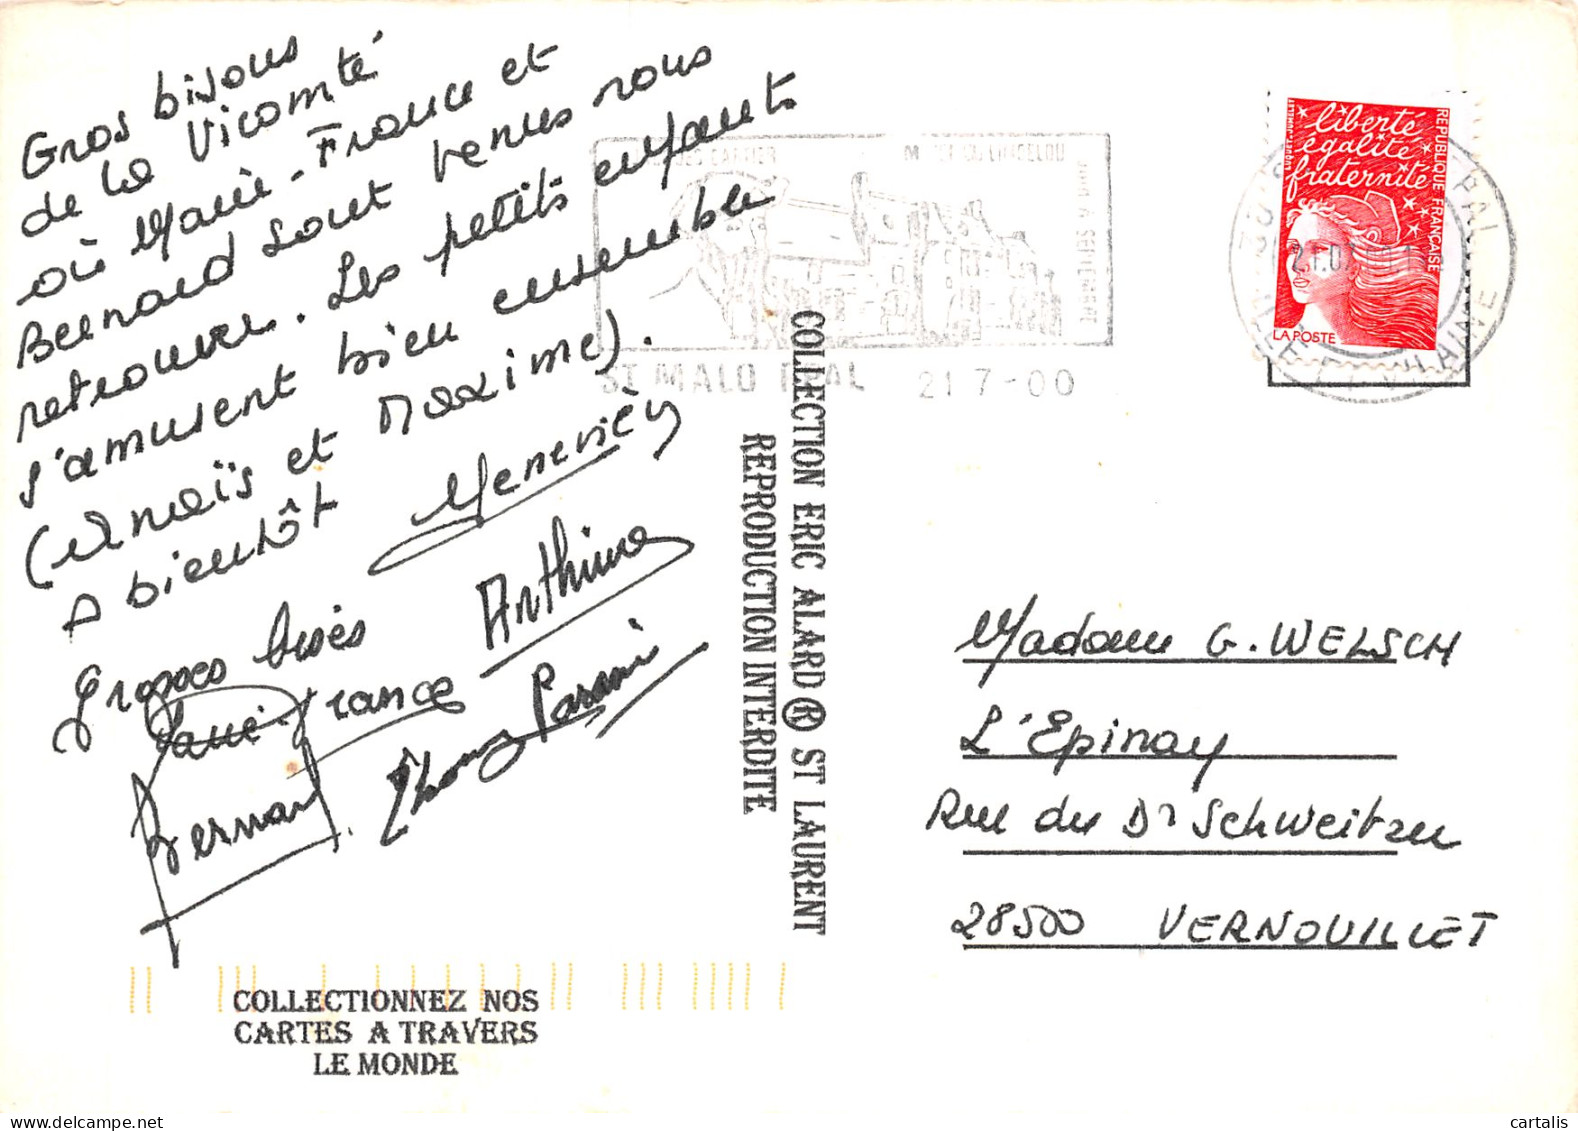 Gros bisous
de la Vicomté
où Marie-France et
Bernard sont venus nous
retrouver. Les petits enfants
s'amusent bien ensemble
(Anaïs et Maxime).
A bientôt
Geneviève
Grosses bises
Marie-France
Bernard
COLLECTIONNEZ NOS
CARTES A TRAVERS
LE MONDE
COLLECTION ERIC ALARD ® ST LAURENT
REPRODUCTION INTERDITE
CARTIER
ST MALO PPAL 21 7-00
liberté
égalité
fraternité
REPUBLIQUE FRANÇAISE
LA POSTE
Madame G. WELSCH
L'Epinay
Rue du Dr Schweitzer
28500 VERNOUILLET
cartalis